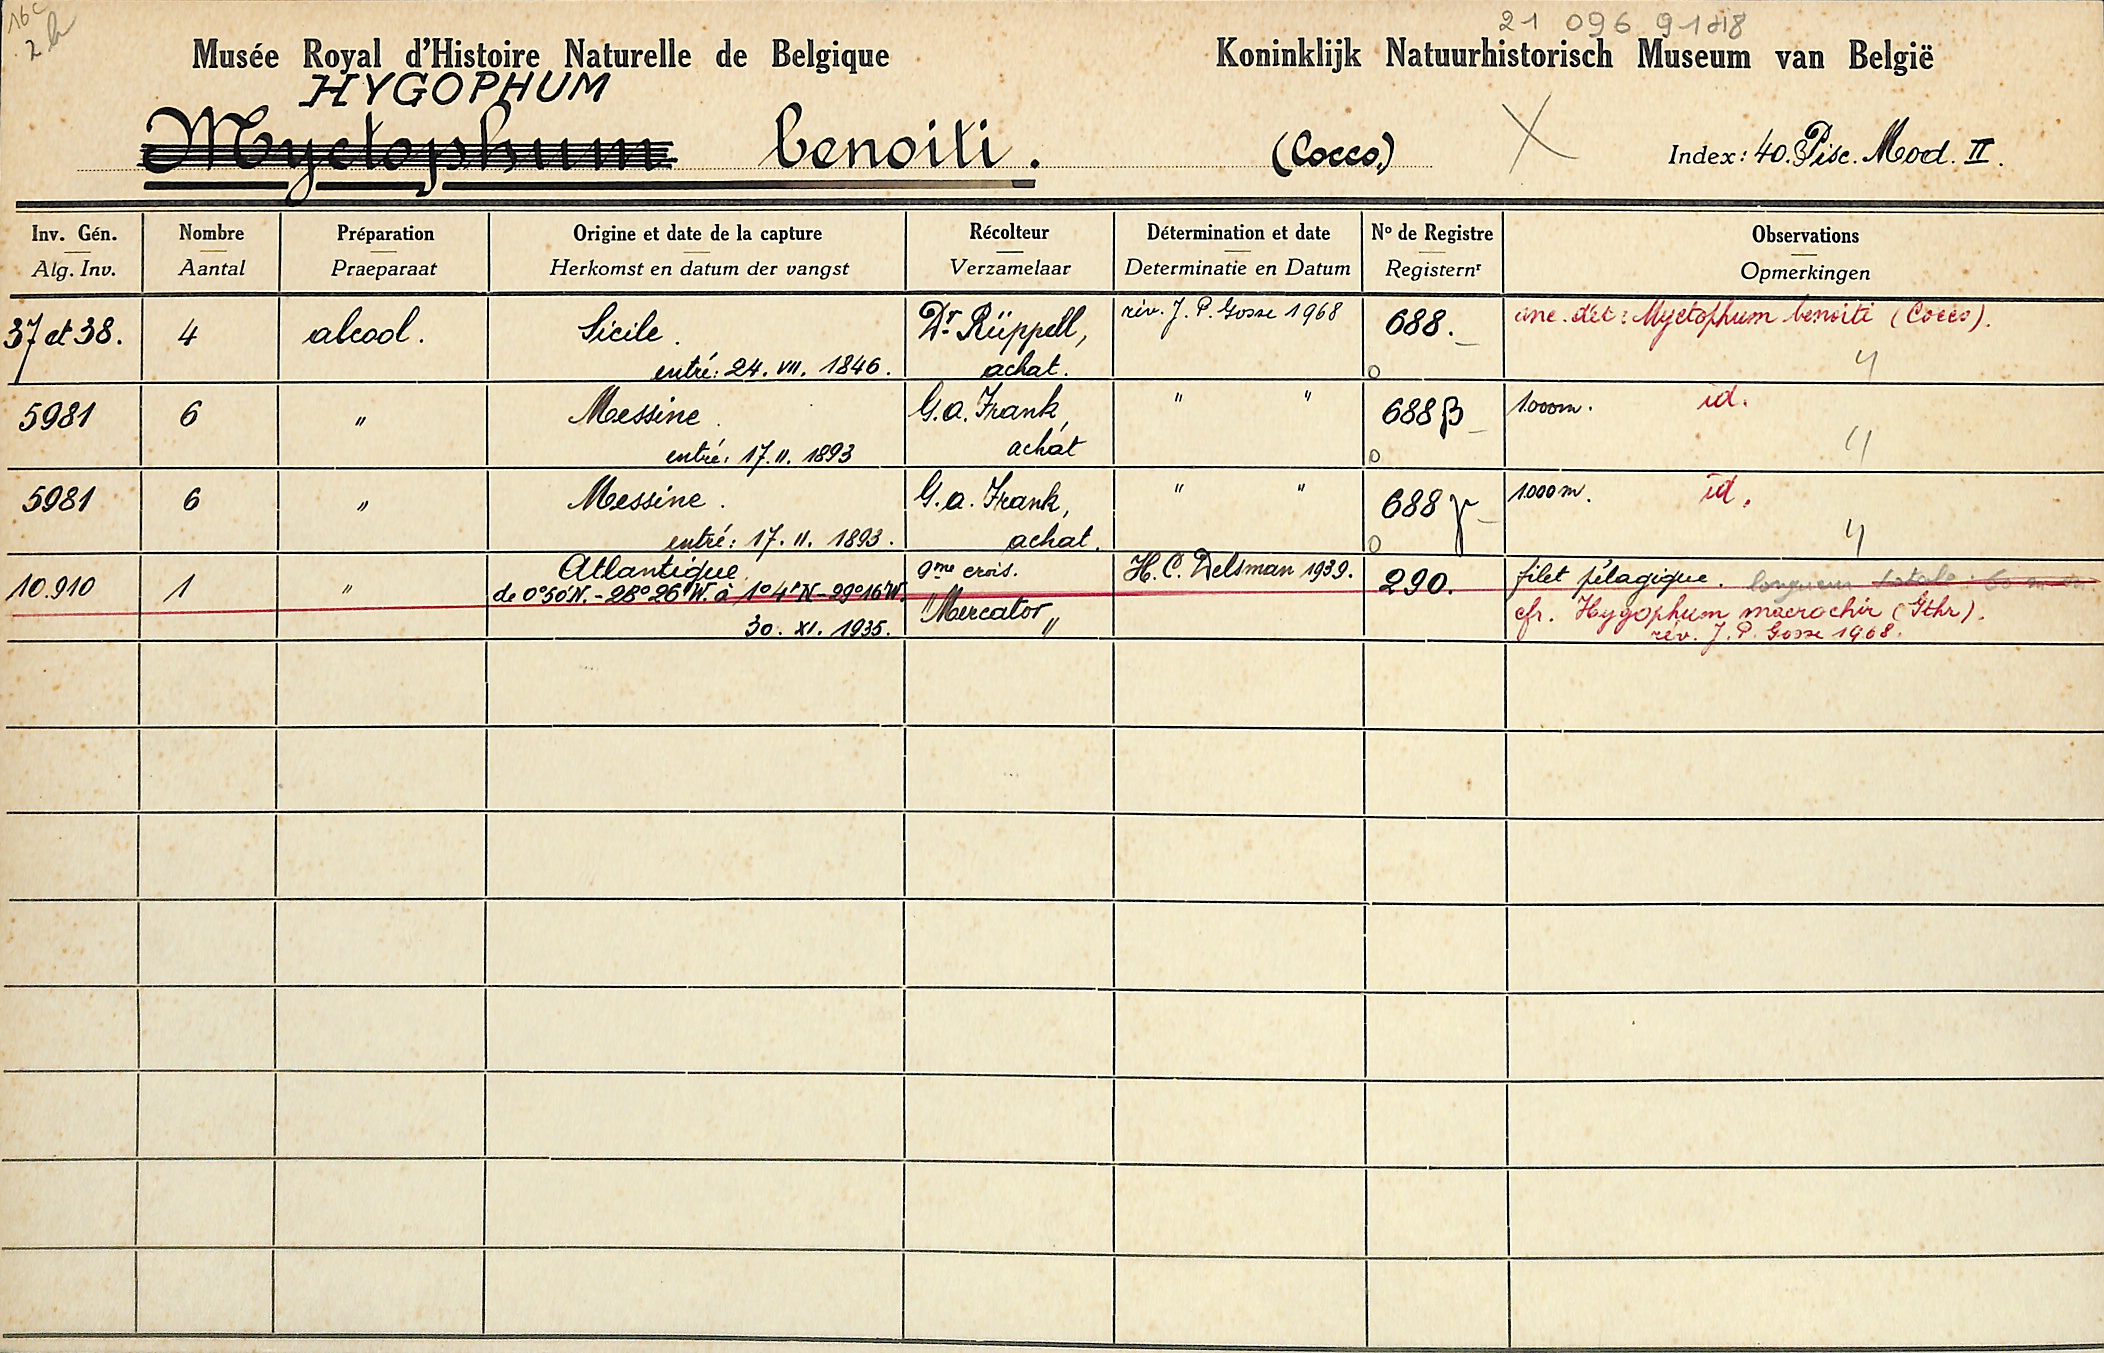 16c
2b
21 096 9188
Musée Royal d'Histoire Naturelle de Belgique
Koninklijk Natuurhistorisch Museum van België
HYGOPHUM
Myctophum benoiti. (Cocco.) X Index: 40. Pisc. Mod. II.
Inv. Gén. Nombre Préparation Origine et date de la capture Récolteur Détermination et date Nº de Registre Observations
Alg. Inv. Aantal Praeparaat Herkomst en datum der vangst Verzamelaar Determinatie en Datum Registernr Opmerkingen
37 et 38. 4 alcool. Sicile. Dr. Rüppell, rév. J. P. Gosse 1968 688. anc. dét: Myctophum benoiti (Cocco).
entré: 24. VII. 1846. achat. 0 4
5981 6 " Messine. G.a. Frank, " " 688 β 1000m. id.
entré: 17. II. 1893 achat 0 4
5981 6 " Messine. G.a. Frank, " " 688 γ 1000m. id.
entré: 17. II. 1893. achat. 0 4
10.910 1 " Atlantique 9me crois. H. C. Delsman 1939. 290. filet pélagique. longueur totale: 60 m m.
de 0°50'N. - 28°26'W. à 1°4'N - 29°16'W. "Mercator" cfr. Hygophum macrochir (Gthr).
30. XI. 1935. rév. J. P. Gosse 1968.